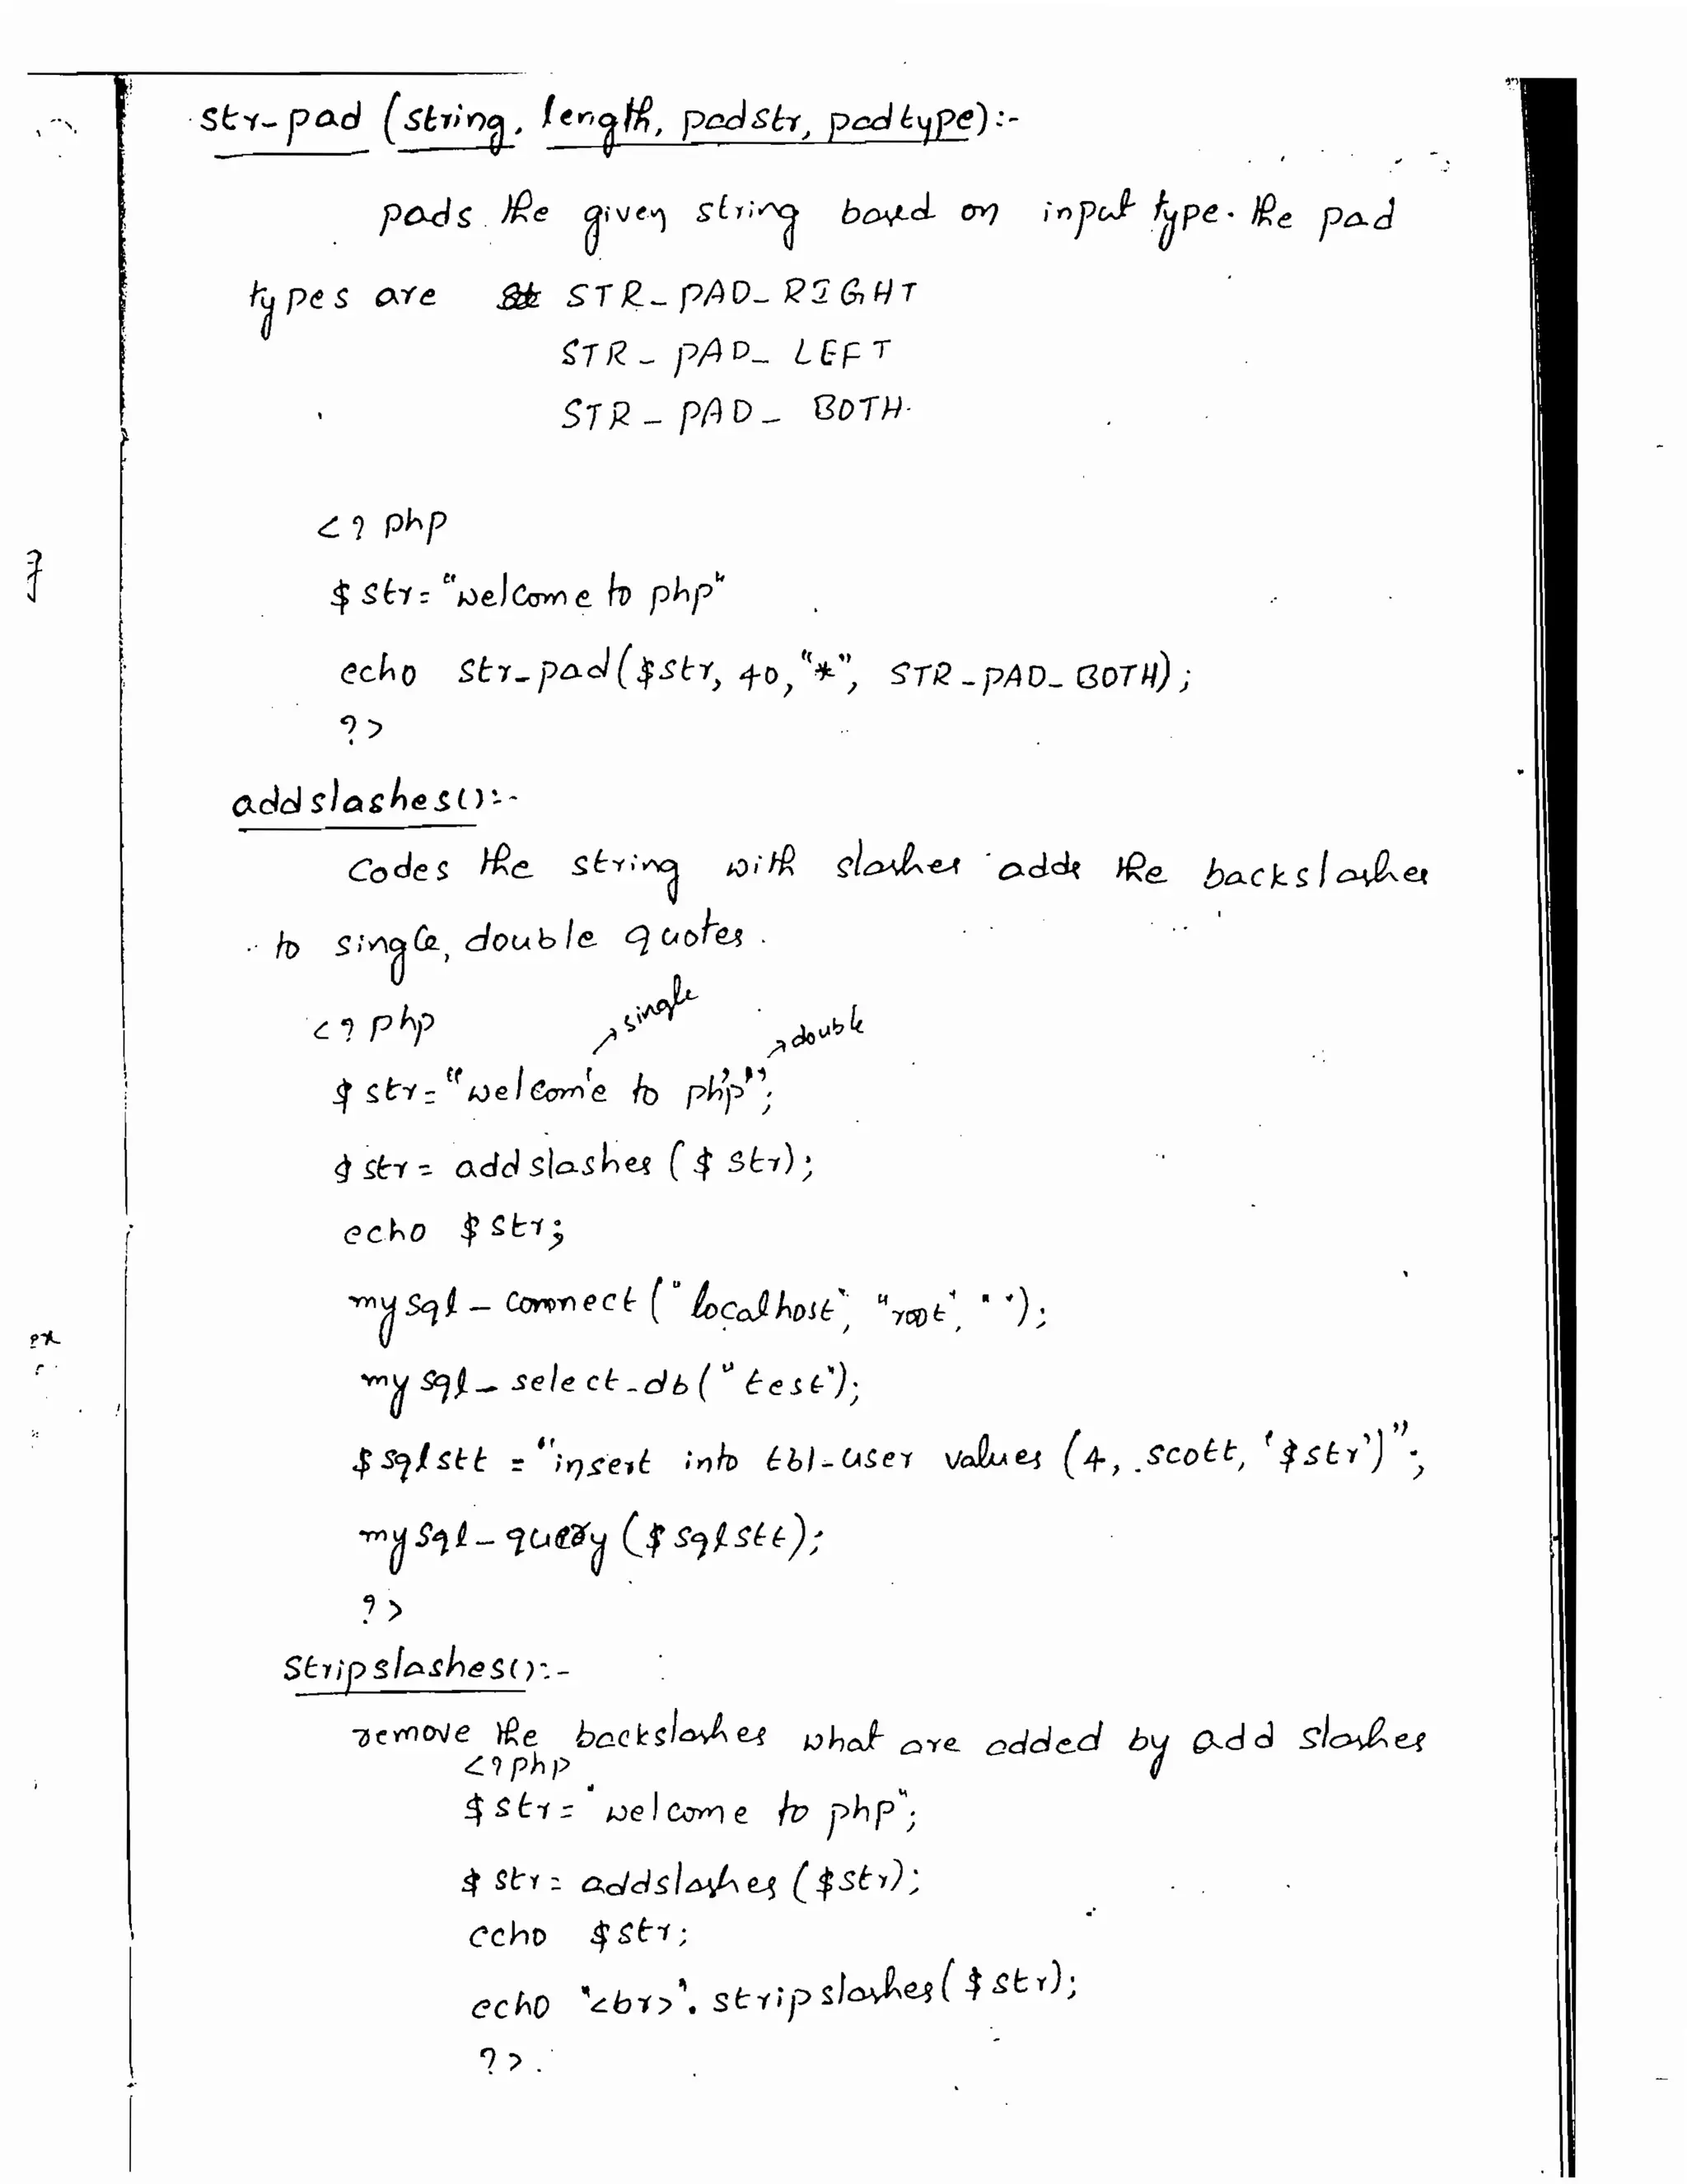 str_pad (string, length, padstr, padtype):-
pads the given string based on input type. the pad
types are STR_PAD_RIGHT
STR_PAD_LEFT
STR_PAD_BOTH.
<? php
$str="welcome to php"
echo str_pad($str, 40, "*", STR_PAD_BOTH);
?>
addslashes():-
Codes the string with slashes adds the backslashes
to single, double quotes.
<? php
single
double
$str="welcom'e to ph'p";
$str = addslashes ($str);
echo $str;
mysql_connect ("localhost", "root", "");
mysql_select_db("test");
$sqlstt = "insert into tbl_user values (4, scott, '$str')";
mysql_query ($sqlstt);
?>
Stripslashes():-
remove the backslashes what are added by add slashes
<?php
$str="welcome to php";
$str= addslashes ($str);
echo $str;
echo "<br>". stripslashes($str);
?>.